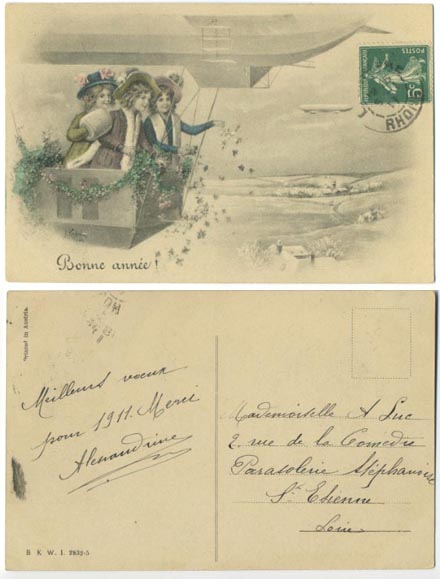 POSTES
RHÔ
Bonne année!
Printed in Austria.
Meilleurs voeux
pour 1911. Merci
Alexandrine
Mademoiselle A Luc
2, rue de la Comédie
Parasolerie Stéphanoise
St Etienne
Loire
B. K. W. I. 2832-5